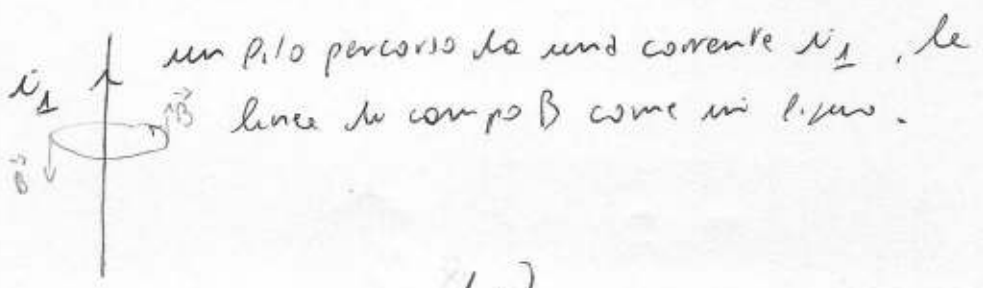 un filo percorso da una corrente i₁, le
i₁
B⃗
linee di campo B come in figura.
B⃗